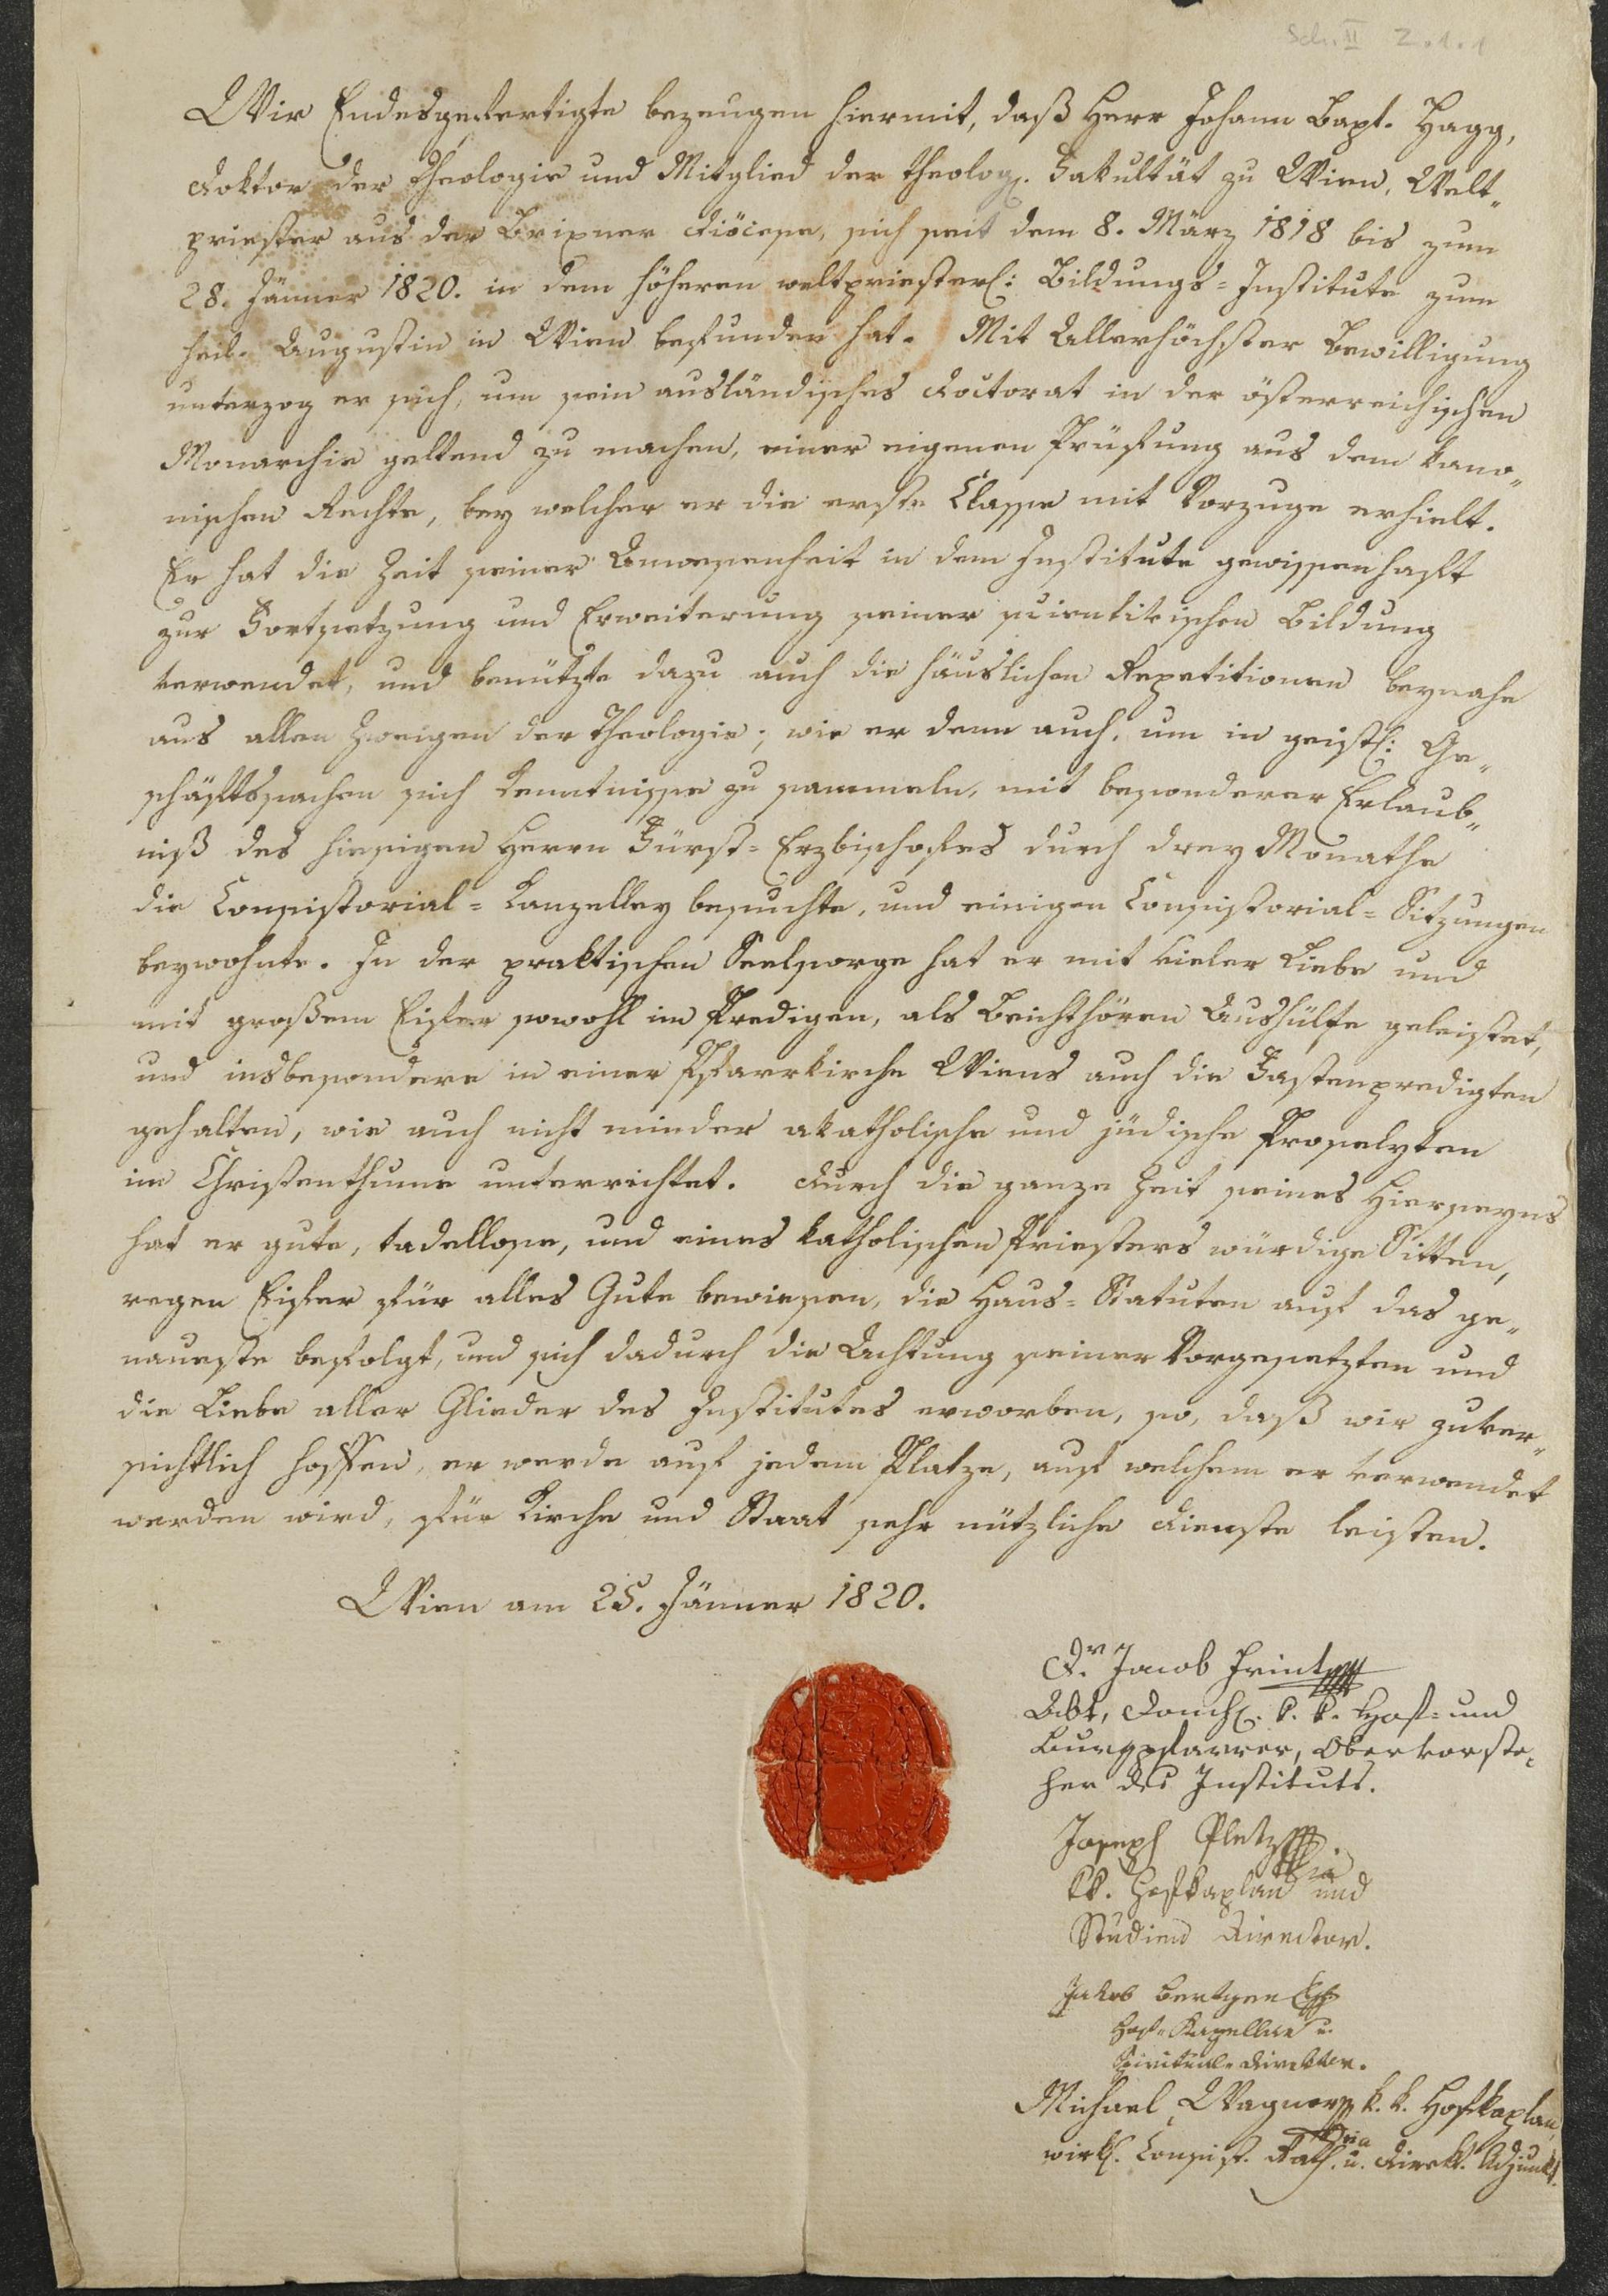 Sch. II 2.1.1
Wir Endesgefertigte bezeugen hiermit, daß Herr Johann Bapt. Hagg,
Doktor der Theologie und Mitglied der theolog. Fakultät zu Wien, Welt„
priester aus der Brixner Diöcese, sich seit dem 8. März 1818 bis zum
28. Jänner 1820. in dem höheren weltpriesterl: Bildungs-Institute zum
heil. Augustin in Wien befunden hat. Mit Allerhöchster Bewilligung
unterzog er sich, um sein ausländisches Doctorat in der österreichischen
Monarchie geltend zu machen, einer eigenen Prüfung aus dem kano„
nischen Rechte, bey welcher er die erste Classe mit Vorzuge erhielt.
Er hat die Zeit seiner Anwesenheit in dem Institute gewissenhaft
zur Fortsetzung und Erweiterung seiner scientifischen Bildung
verwendet, und benützte dazu auch die häuslichen Repetitionen beynahe
aus allen Zweigen der Theologie; wie er denn auch, um in geistl: Ge„
schäftssachen sich Kenntnisse zu sammeln, mit besonderer Erlaub„
niß des hiesigen Herrn Fürst-Erzbischofes durch drey Monathe
die Consistorial-Kanzelley besuchte, und einigen Consistorial-Sitzungen
beywohnte. In der praktischen Seelsorge hat er mit vieler Liebe und
mit großem Eifer sowohl im Predigen, als Beichthören Aushülfe geleistet,
und insbesondere in einer Pfarrkirche Wiens auch die Fastenpredigten
gehalten, wie auch nicht minder akatholische und jüdische Proselyten
im Christenthume unterrichtet. Durch die ganze Zeit seines Hierseyns
hat er gute, tadellose, und eines katholischen Priesters würdige Sitten,
regen Eifer für alles Gute bewiesen, die Haus-Statuten auf das ge„
naueste befolgt, und sich dadurch die Achtung seiner Vorgesetzten und
die Liebe aller Glieder des Institutes erworben, so, daß wir zuver„
sichtlich hoffen, er werde auf jedem Platze, auf welchem er verwendet
werden wird, für Kirche und Staat sehr nützliche Dienste leisten.
Wien am 25. Jänner 1820.
Dr. Jacob Frint
Abt, Domh. k. k. Hof- und
Burgpfarrer, Obervorste-
her des Instituts.
Joseph Pletz
kk. Hofkaplan und
Studien Director.
Jakob
Hof-Kapellan u.
Spiritual-Direktor.
Michael Wagner k. k. Hofkaplan,
wirkl. Consist. Rath. u. Direkt. Adjunkt.